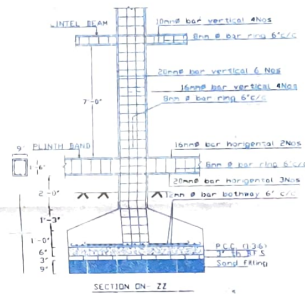 INTEL BEAM
10mmØ bar vertical 4Nos
8mm Ø bar ring 6"c/c
20mmØ bar vertical 6 Nos
16mmØ bar vertical 4Nos
8mm Ø bar ring 6"c/c
7'-0"
PLINTH BAND
16mmØ bar horigental 2Nos
9"
6mm Ø bar ring 6"c/c
20mmØ bar horigental 3Nos
2'-0"
bar bothway 6" c/c
1'-3"
1'-0"
P.C.C (1:3:6)
6"
3"
Sand filling
9"
SECTION ON- ZZ